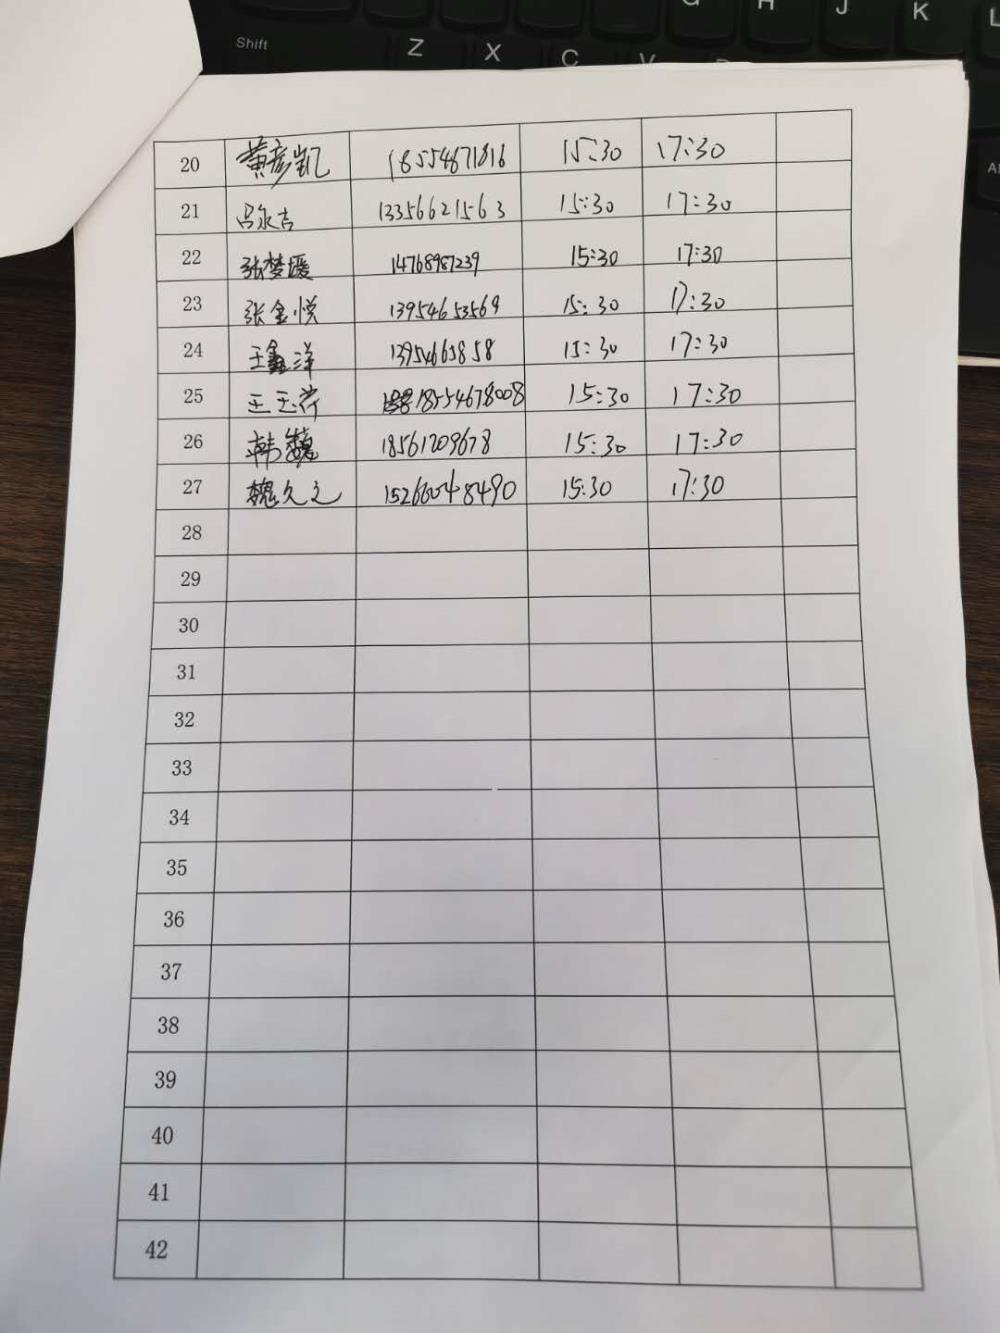 Shift Z X C V G H J K L
20 黄彦凯 18554871816 15:30 17:30
21 吕永吉 13356621563 15:30 17:30
22 张梦媛 14768987239 15:30 17:30
23 张金悦 13954653569 15:30 17:30
24 王鑫洋 15:30 17:30
25 18554678008 15:30 17:30
26 韩巍 18561209678 15:30 17:30
27 魏久之 15266048490 15:30 17:30
28
29
30
31
32
33
34
35
36
37
38
39
40
41
42